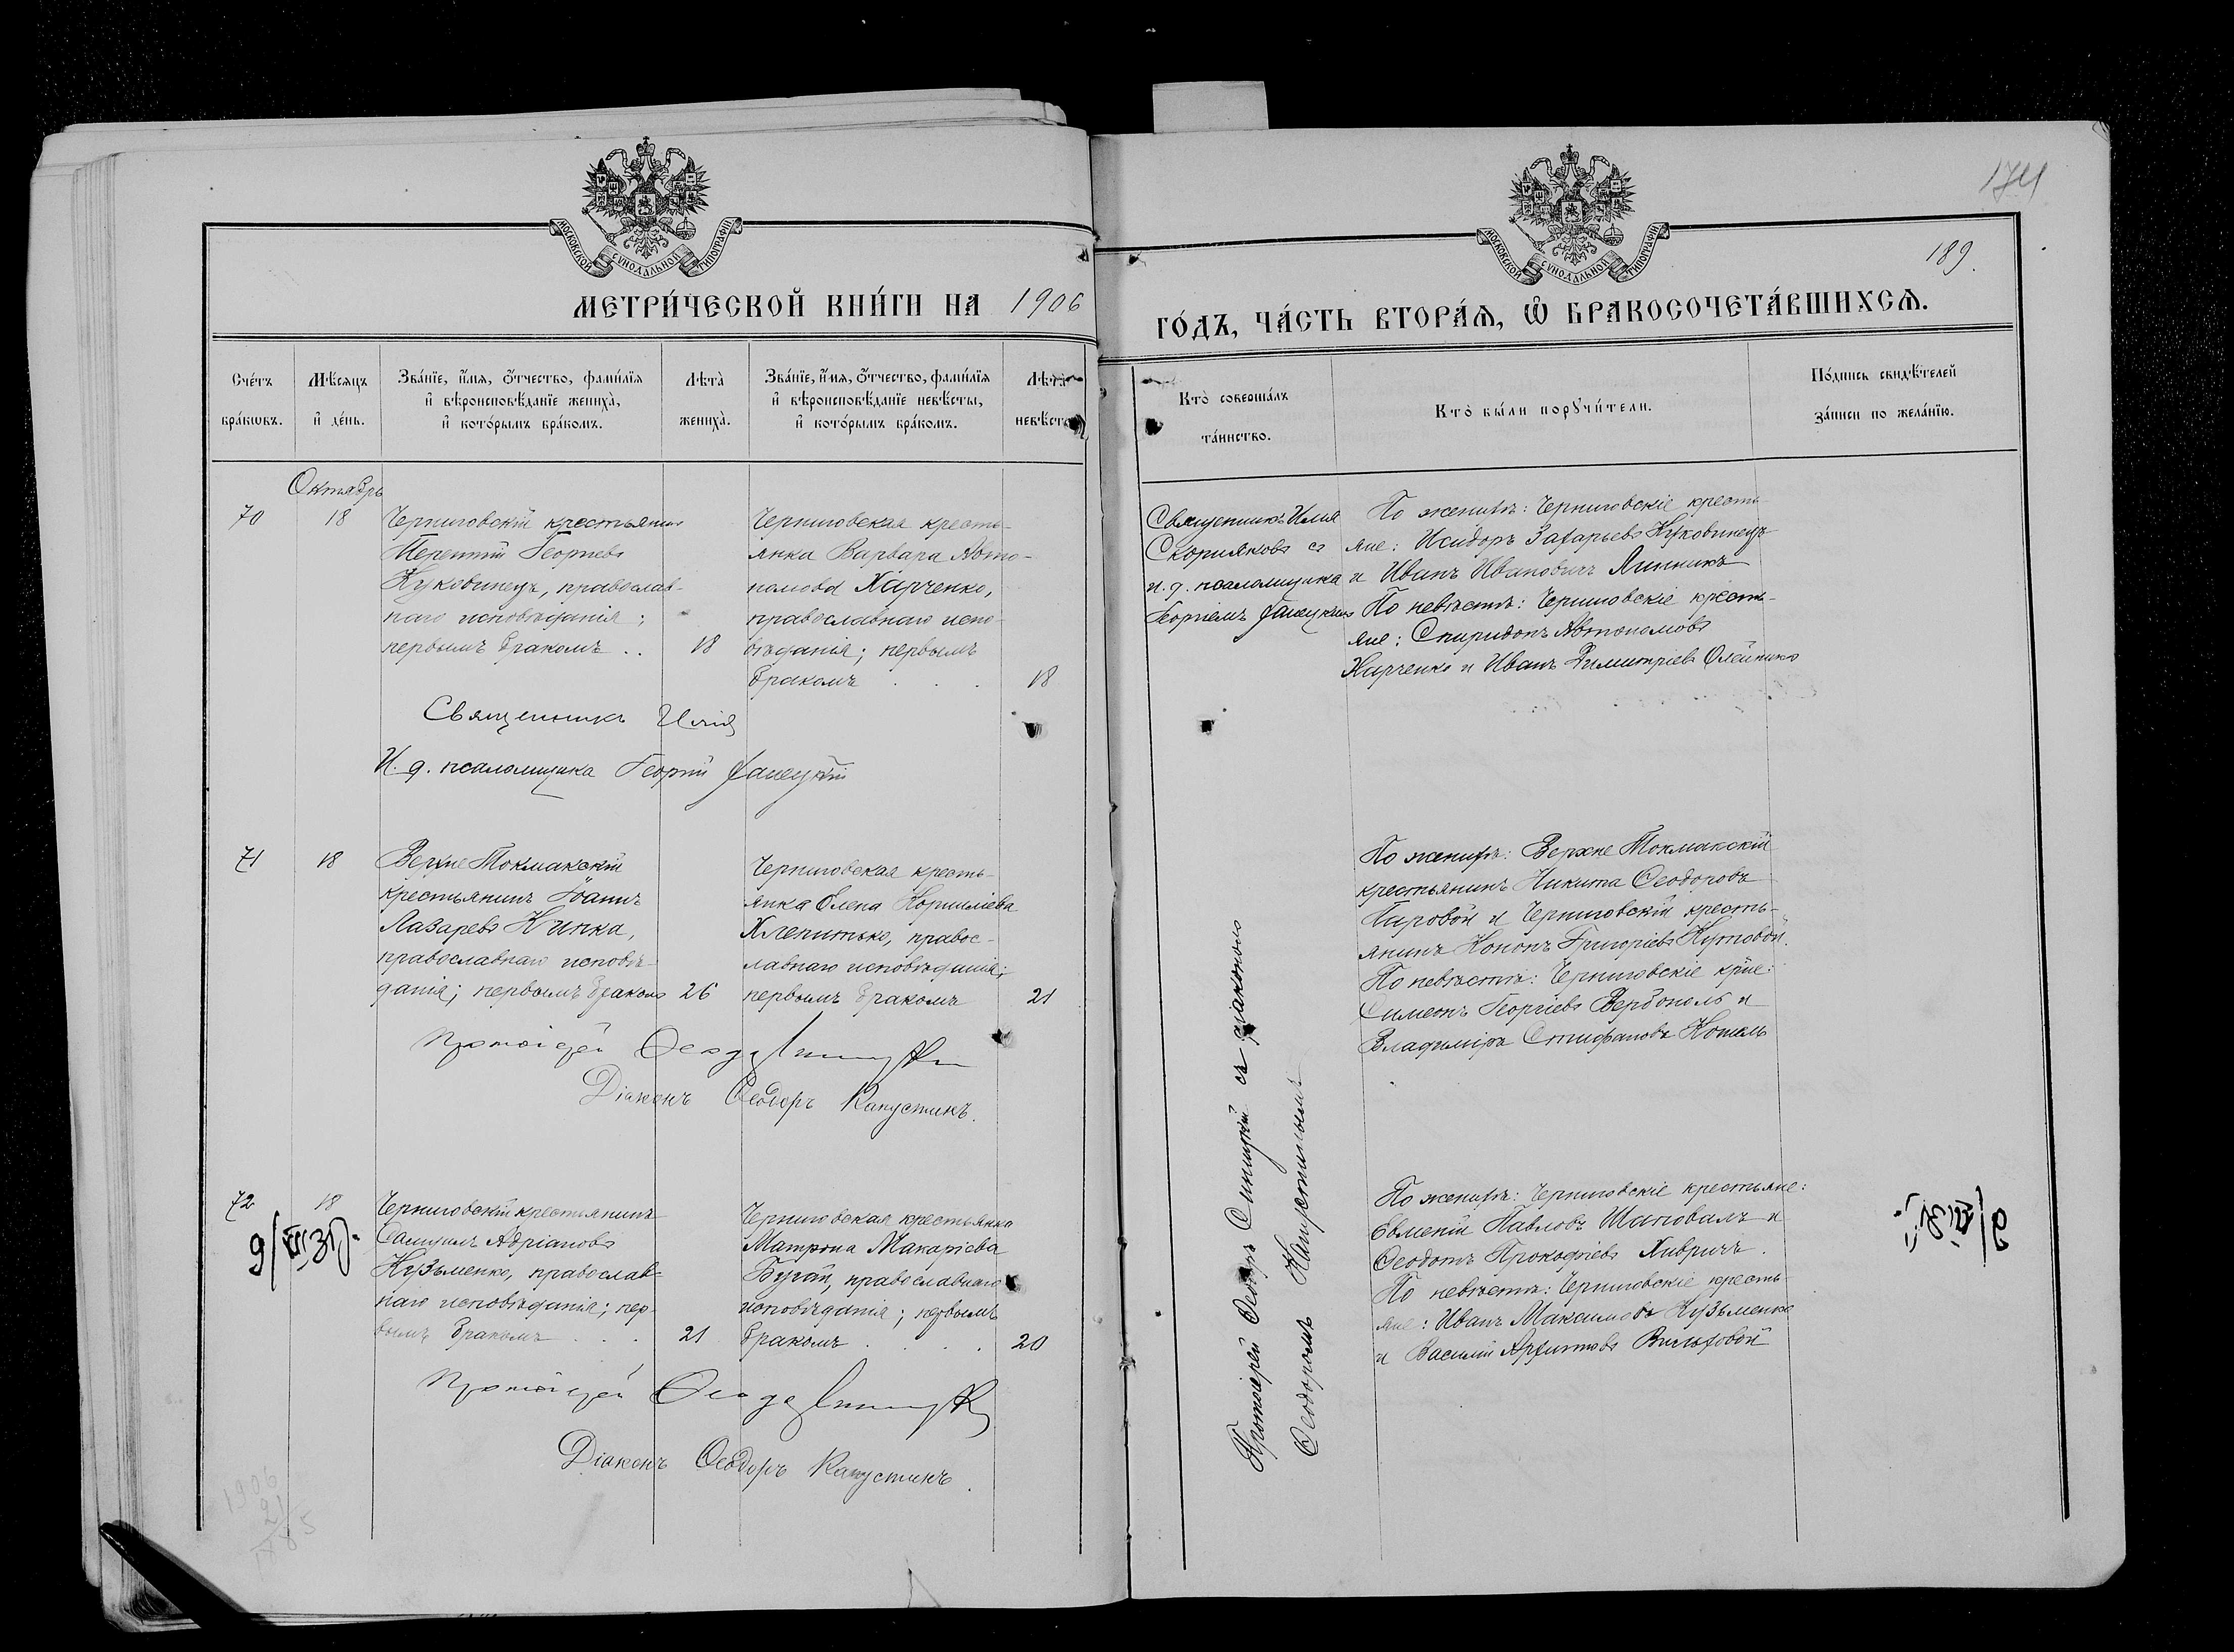 174
189.
МОСКОВСКОЙ СѴНОДАЛЬНОЙ ТИПОГРАФІИ
МОСКОВСКОЙ СѴНОДАЛЬНОЙ ТИПОГРАФІИ
МЕТРИ́ЧЕСКОЙ КНИ́ГИ НА 1906
ГО́ДЪ, ЧА́СТЬ ВТОРА́Ѧ, Ѡ҆ БРАКОСОЧЕТА́ВШИХСѦ.
Сче́тъ бра́кѡвъ.
Мѣ́сѧцъ и҆ де́нь.
Зва́нїе, и҆́мѧ, ѻ҆́тчество, фами́лїѧ и҆ вѣроисповѣ́данїе жениха̀, и҆ кото́рымъ бра́комъ.
Лѣта̀ жениха̀.
Зва́нїе, и҆́мѧ, ѻ҆́тчество, фами́лїѧ и҆ вѣроисповѣ́данїе невѣ́сты, и҆ кото́рымъ бра́комъ.
Лѣта̀ невѣ́сты
Кто̀ соверша́лъ та́инство.
Кто̀ бы́ли порꙋчи́тели.
По́дпись свидѣ́телей за́писи по жела́нїю.
Октябрь
70
18
Черниговскій крестьянинъ
Терентій Георгіевъ
Куковинецъ, православ-
наго исповѣданія;
первымъ бракомъ . .
18
Черниговская кресть-
янка Варвара Авто-
номова Харченко,
православнаго испо-
вѣданія; первымъ
бракомъ . . .
18
Священникъ Илія
Скорняковъ съ
и. д. псаломщика
Георгіемъ
По женихѣ: Черниговскіе кресть-
яне: Исидоръ Захарьевъ Куковинецъ
и Иванъ Ивановичъ Линникъ
По невѣстѣ: Черниговскіе кресть-
яне: Спиридонъ Автономовъ
Харченко и Иванъ Димитріевъ Олейникъ
Священникъ Илія
И. д. псаломщика Георгій
71
18
Верхне Токмакскій
крестьянинъ Іоаннъ
Лазаревъ Кинка,
православнаго исповѣ-
данія; первымъ бракомъ
26
Черниговская кресть-
янка Елена Корниліева
Хлепитько, правос-
лавнаго исповѣданія;
первымъ бракомъ
21
По женихѣ: Верхне Токмакскій
крестьянинъ Никита Ѳеодоровъ
Пировой и Черниговскій кресть-
янинъ Кононъ Григоріевъ Кутовой.
По невѣстѣ: Черниговскіе кр̃не:
Симеонъ Георгіевъ Верб­ополь и
Владиміръ Стефановъ Кошель
Протоіерей Ѳеодоръ Синицкій
Діаконъ Ѳеодоръ Капустинъ.
72
18
Черниговскій крестьянинъ
Самуилъ Адріановъ
Кузьменко, православ-
наго исповѣданія; пер-
вымъ бракомъ . . .
21
Черниговская крестьянка
Матрона Макаріева
Бугай, православнаго
исповѣданія; первымъ
бракомъ . . . .
20
По женихѣ: Черниговскіе крестьяне:
Евменій Павловъ Шаповалъ и
Ѳеодотъ Прокофіевъ Хивричъ.
По невѣстѣ: Черниговскіе кресть-
яне: Иванъ Максимовъ Кузьменко
и Василій Архиповъ Вильховой
Протоіерей Ѳеодоръ Синицкій
Діаконъ Ѳеодоръ Капустинъ.
Протоіерей Ѳеодоръ Синицкій съ діакономъ
Ѳеодоромъ Капустинымъ
1906
21
1885